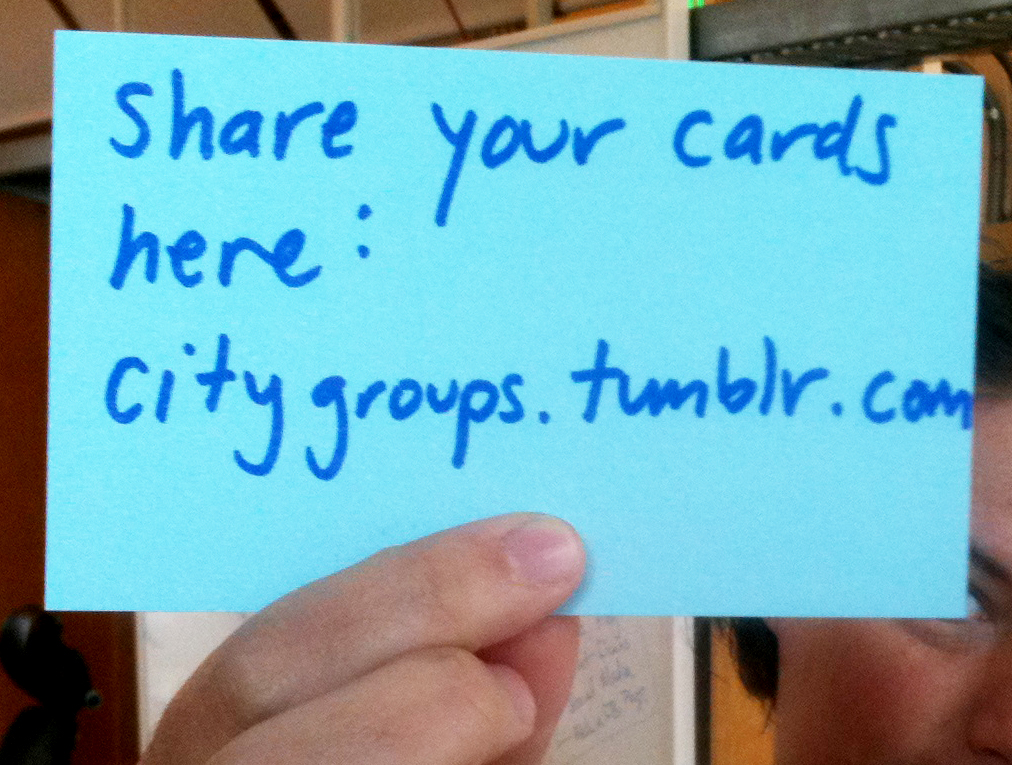 Share your cards
here:
citygroups.tumblr.com